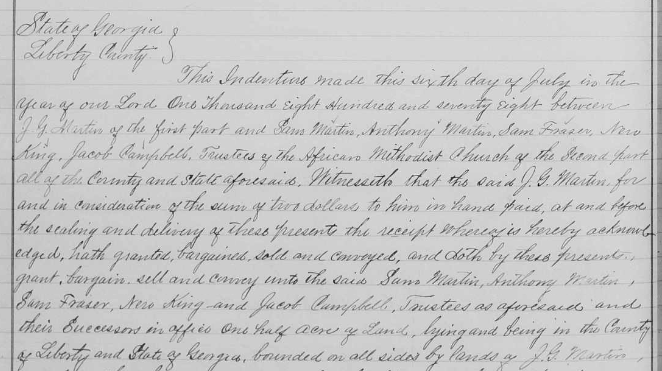 State of Georgia }
Liberty County }
This Indenture made this sixth day of July in the
year of our Lord One Thousand Eight Hundred and seventy Eight between
J. G. Martin of the first part and Sam Martin, Anthony Martin, Sam Fraser, Nero
King, Jacob Campbell, Trustees of the African Methodist Church of the Second part
all of the County and State aforesaid. Witnesseth that the said J. G. Martin, for
and in consideration of the sum of two dollars to him in hand paid, at and before
the sealing and delivery of these present the receipt whereof is hereby acknowl-
edged, hath granted, bargained, sold and conveyed, and doth by these presents
grant, bargain, sell and convey unto the said Sam Martin, Anthony Martin,
Sam Fraser, Nero King and Jacob Campbell, Trusties as aforesaid and
their Successors in office One half acre of Land, lying and being in the County
of Liberty and State of Georgia, bounded on all sides by lands of J. G. Martin,